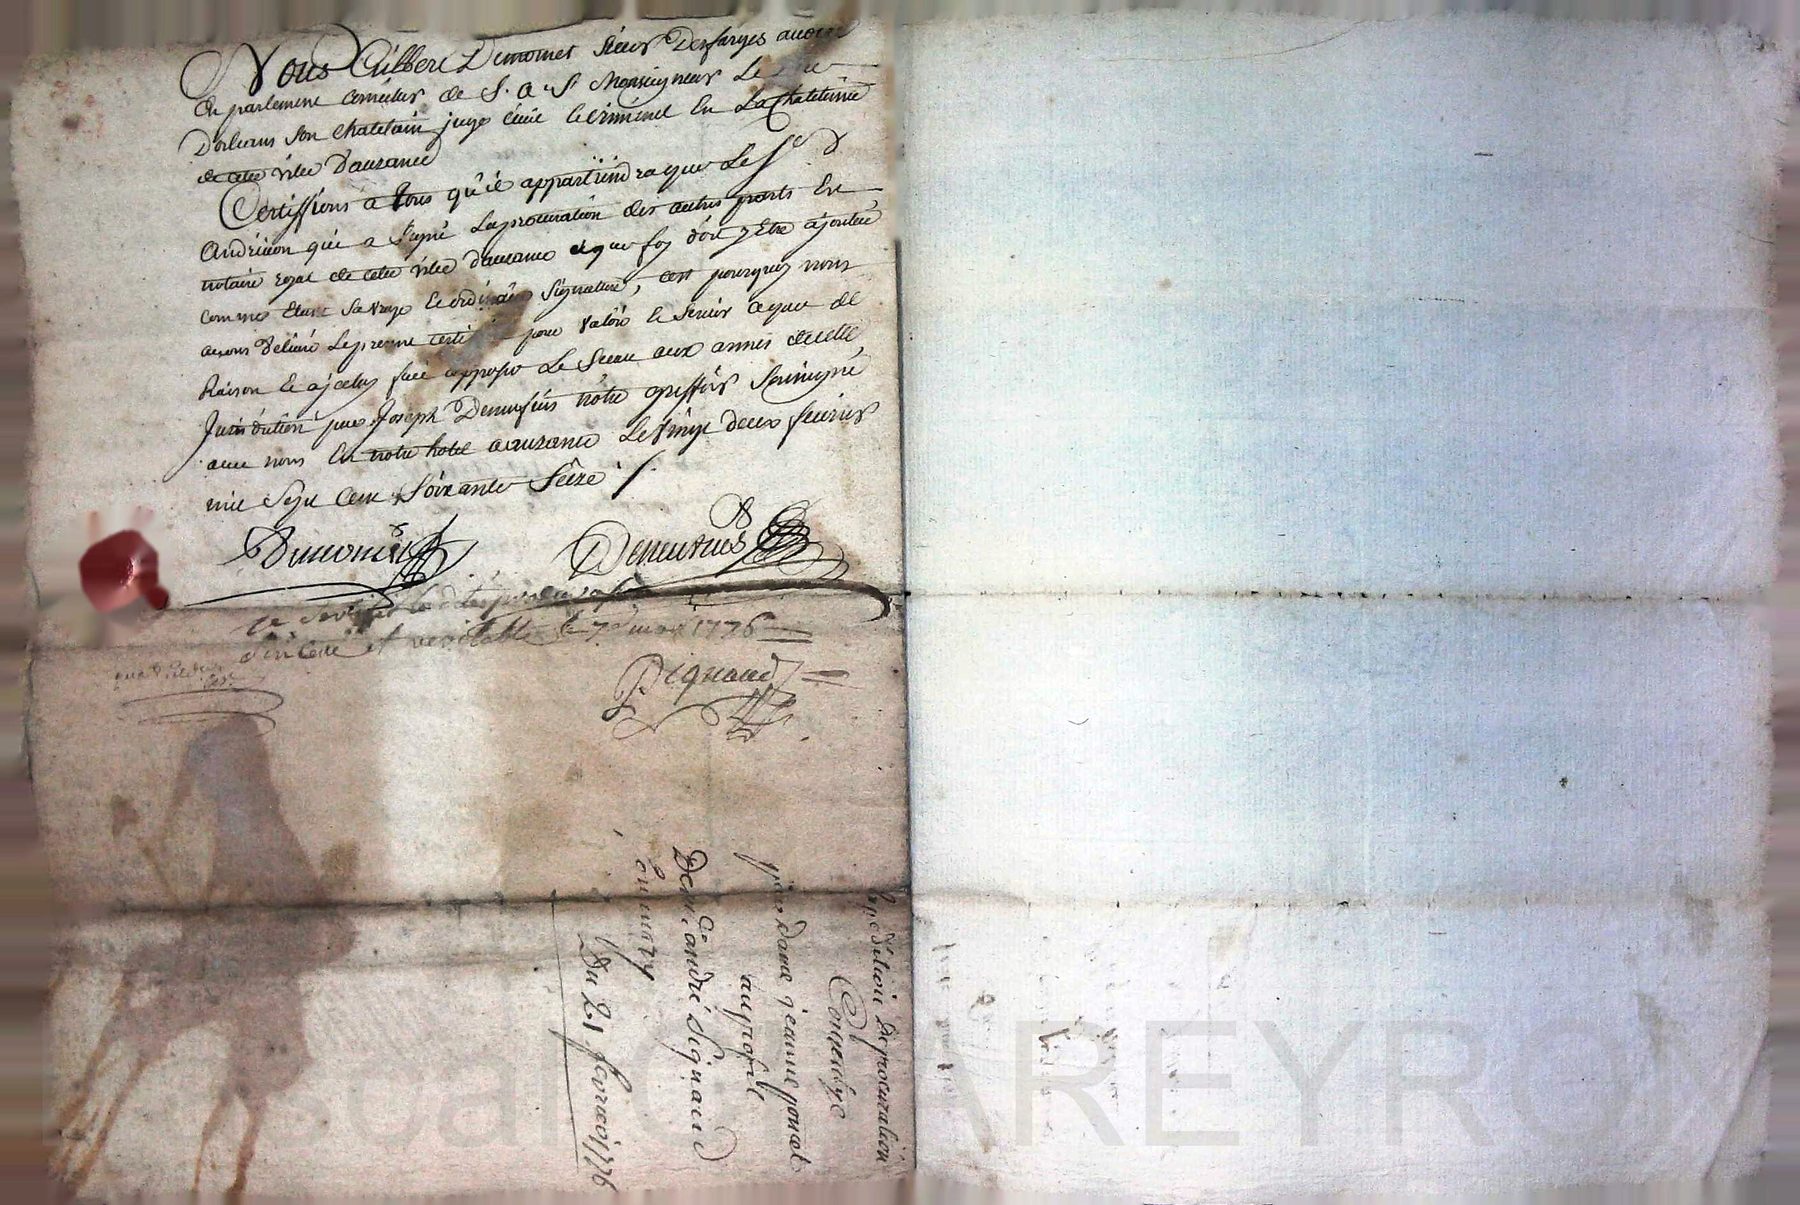 Nous Gilbert Demonet sieur Desfarges avocat
En parlement conseiller de S. A. S. Monseigneur Le Duc
Dorleans son Chatelain juge civil et criminel En La Chatelenie
de cette ville Dauzance
Certiffions a tous qu'il appartiendra que Le Sr
Andrieu qui a signé La procuration des autres parts Est
notaire royal de cette ville Dauzance et que foy doit y Etre ajoutée
comme Etant sa vraye et ordinaire signature, cest pourquoy nous
avons délivré Le present pour valoir et servir a que de
Raison et a icelluy fait apposer Le Sceau aux armes de cette
Jurisdiction par Joseph notre greffier soussigné
avec nous En notre hotel a auzance Le vingt deux fevrier
mil sept cent soixante seize
Demonet
Je certifie la ditte procuration
sincere et veritable le 7e mars 1776
Signaud
Expédition De procuration
Contenüe
par dame jeanne
au profit
De mre andré Signaud
Du 21 fevrier 1776
CHAREYRON